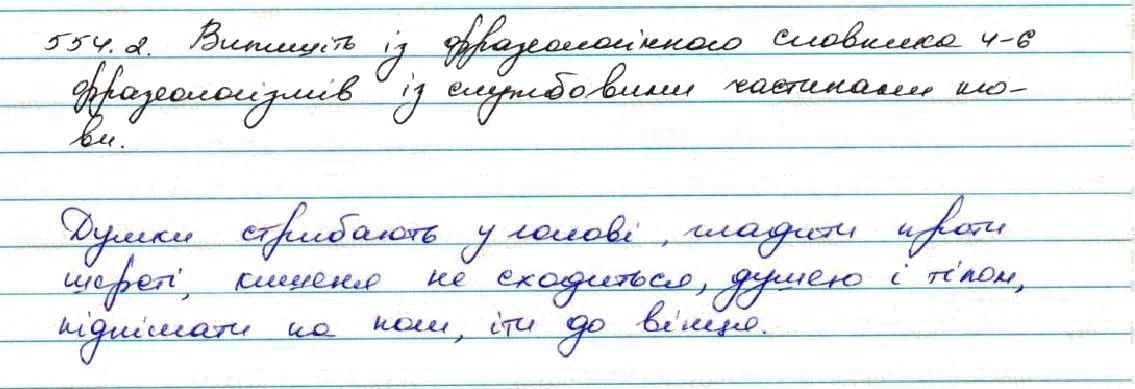 554.2. Випишіть із фразеологічного словника 4-6
фразеологізмів із службовими частинами мо-
ви.
Думки стрибають у голові, гладити проти
шерсті, кишеня не сходиться, душею і тілом,
піднімати на кпи, іти до вінця.